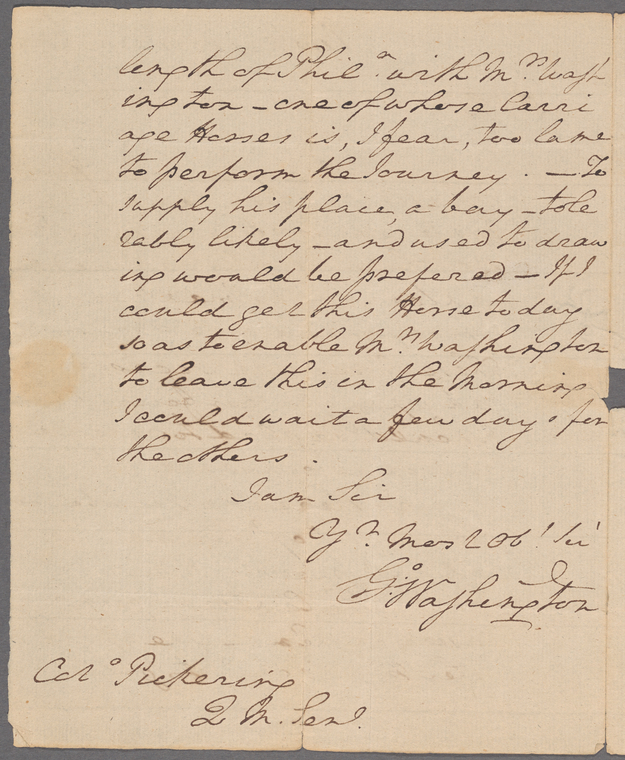 length of Phila. with Mrs. Wash
ington – one of whose Carri
age Horses is, I fear, too lame
to perform the Journey. – To
supply his place, a bay – tole
rably likely – and used to draw
ing would be prefered – If I
could get this Horse today
so as to enable Mrs. Washington
to leave this in the Morning
I could wait a few days for
the others.
I am Sir
Yr. Most Obt. Sert
Go. Washington
Colo. Pickering
Q M. Genl.